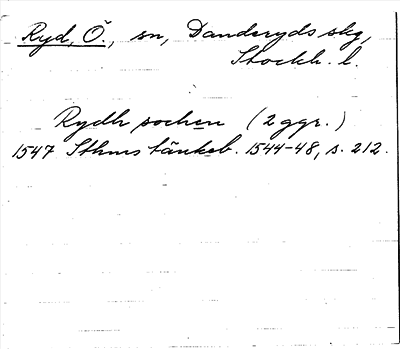 Ryd, Ö., sn, Danderyds skg,
Stockh. l.
Rydh sochen (2 ggr.)
1547 Sthms tänkeb. 1544-48, s. 212.